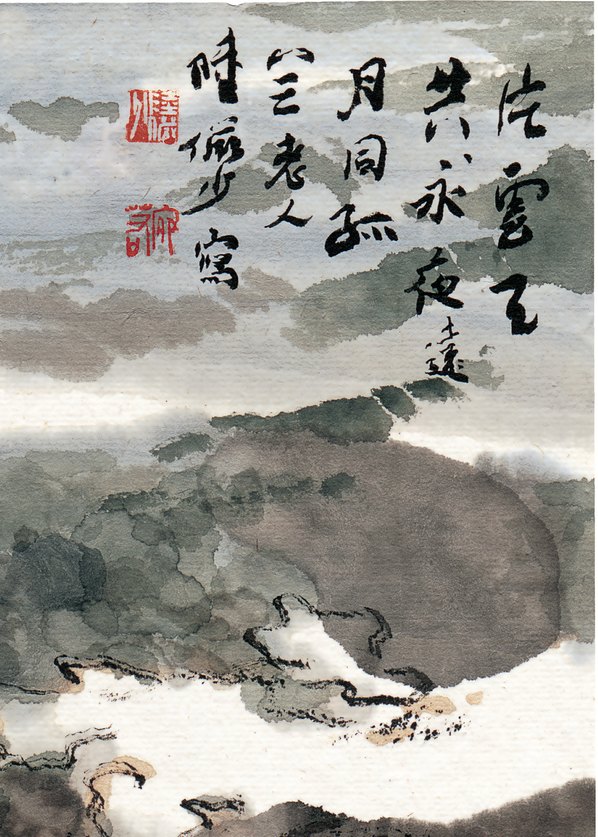 片雲天
共永夜遠
月同孤
八三老人
時儼少寫